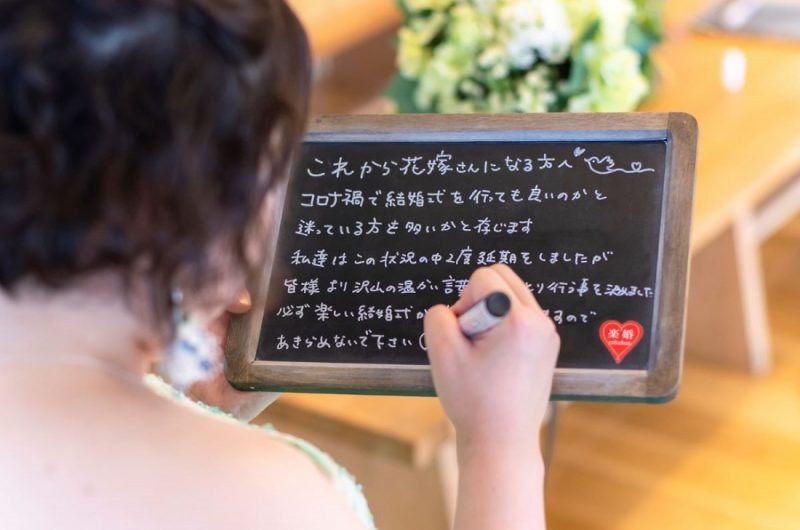 これから花嫁さんになる方へ
コロナ禍で結婚式を行ても良いのかと
迷っている方も多いかと存じます
私達はこの状況の中2度延期をしましたが
皆様より沢山の温かい とり行事を決めました
必ず楽しい結婚式が ますので
あきらめないで下さい
楽婚
rakukon